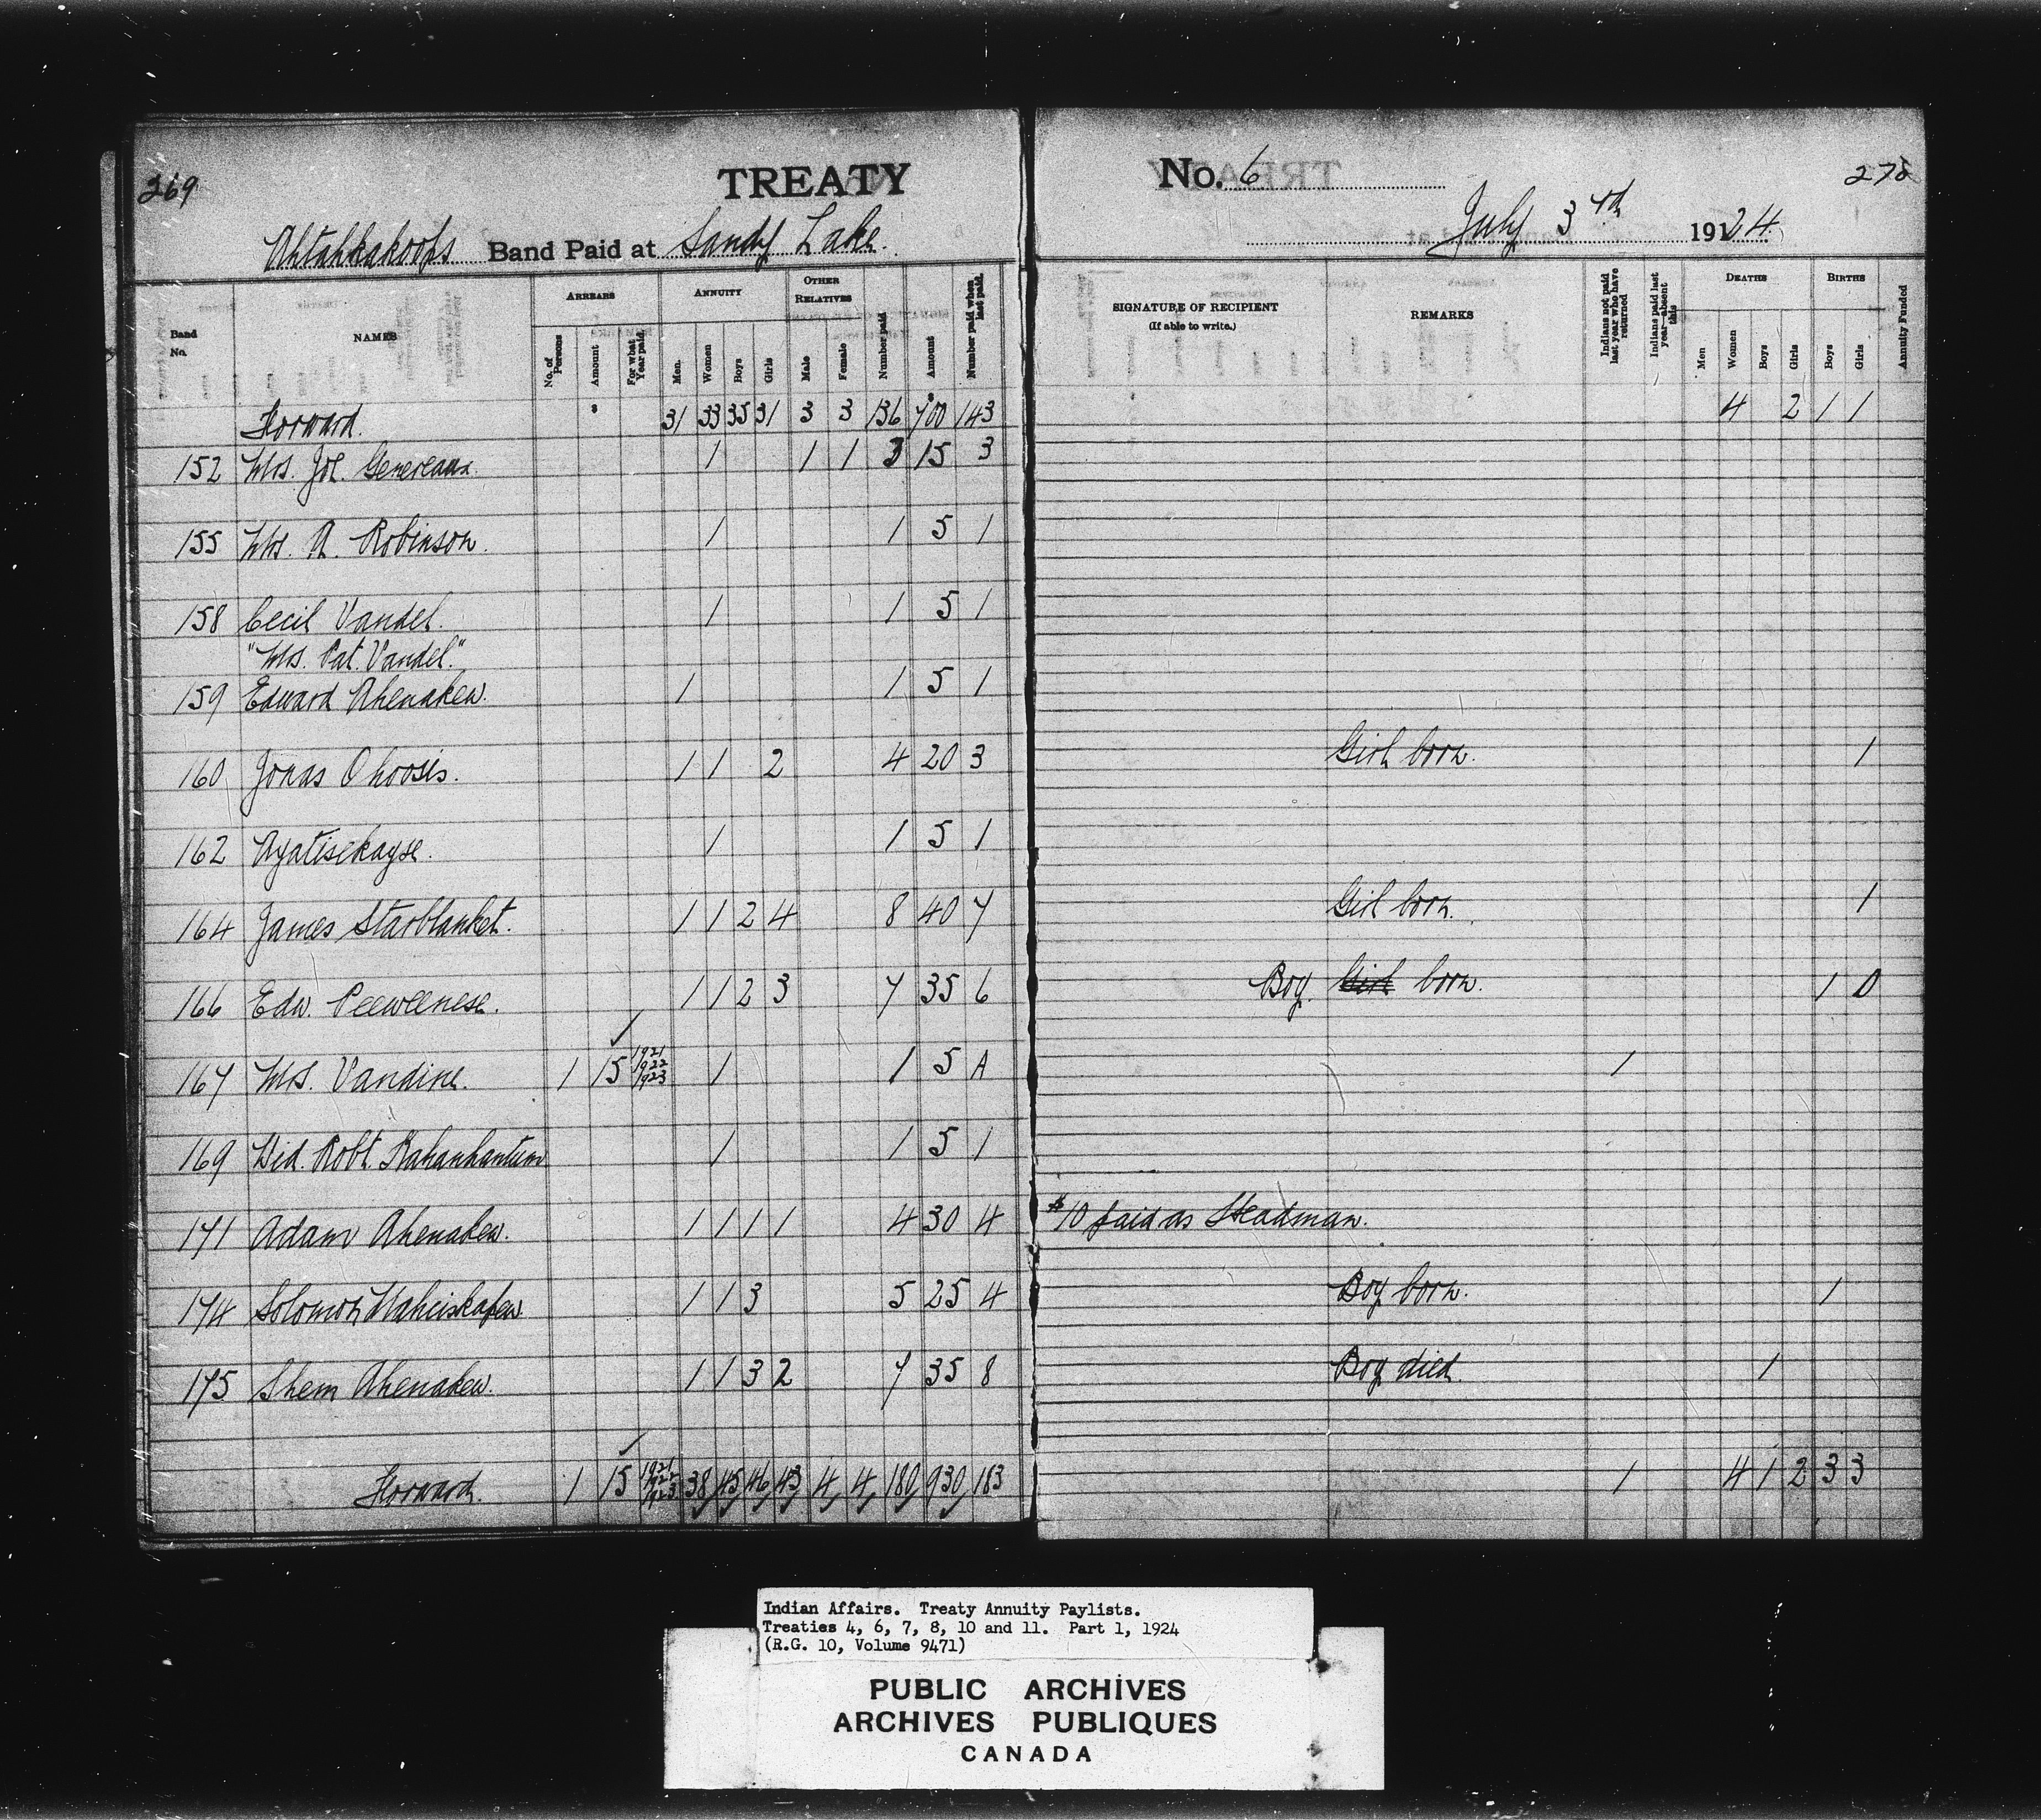 269
TREATY
No. 6
278
Ahtahkakoops Band Paid at Sandy Lake.
July 3rd 1924
Band No. NAMES ARREARS No. of Persons Amount For what Year paid. ANNUITY Men. Women Boys Girls OTHER RELATIVES Male Female Number paid Amount Number paid when last paid.
SIGNATURE OF RECIPIENT (If able to write.) REMARKS Indians not paid last year who have returned Indians paid last year—absent this DEATHS Men Women Boys Girls BIRTHS Boys Girls Annuity Funded
Forward. 31 33 35 31 3 3 136 700 143 4 2 1 1
152 Mrs. Joe. Genereaux. 1 1 1 3 15 3
155 Mrs. A. Robinson. 1 1 5 1
158 Cecil Vandel. 1 1 5 1
"Mrs. Pat. Vandel."
159 Edward Ahenakew. 1 1 5 1
160 Jonas Ohoosis. 1 1 2 4 20 3 Girl born. 1
162 Ayatisekayse. 1 1 5 1
164 James Starblanket. 1 1 2 4 8 40 7 Girl born. 1
166 Edw. Peeweenese. 1 1 2 3 7 35 6 Boy. Girl born. 1 0
167 Mrs. Vandine. 1 15 1921 1922 1923 1 1 5 A 1
169 Wid. Robt. Kahanhantum 1 1 5 1
171 Adam Ahenakew. 1 1 1 1 4 30 4 $10 paid as Headman.
174 Solomon 1 1 3 5 25 4 Boy born. 1
175 Shem Ahenakew. 1 1 3 2 7 35 8 Boy died. 1
Forward. 1 15 1921 1922 1923 38 45 46 43 4 4 180 930 183 1 4 1 2 3 3
Indian Affairs. Treaty Annuity Paylists.
Treaties 4, 6, 7, 8, 10 and 11. Part 1, 1924
(R.G. 10, Volume 9471)
PUBLIC ARCHIVES
ARCHIVES PUBLIQUES
CANADA